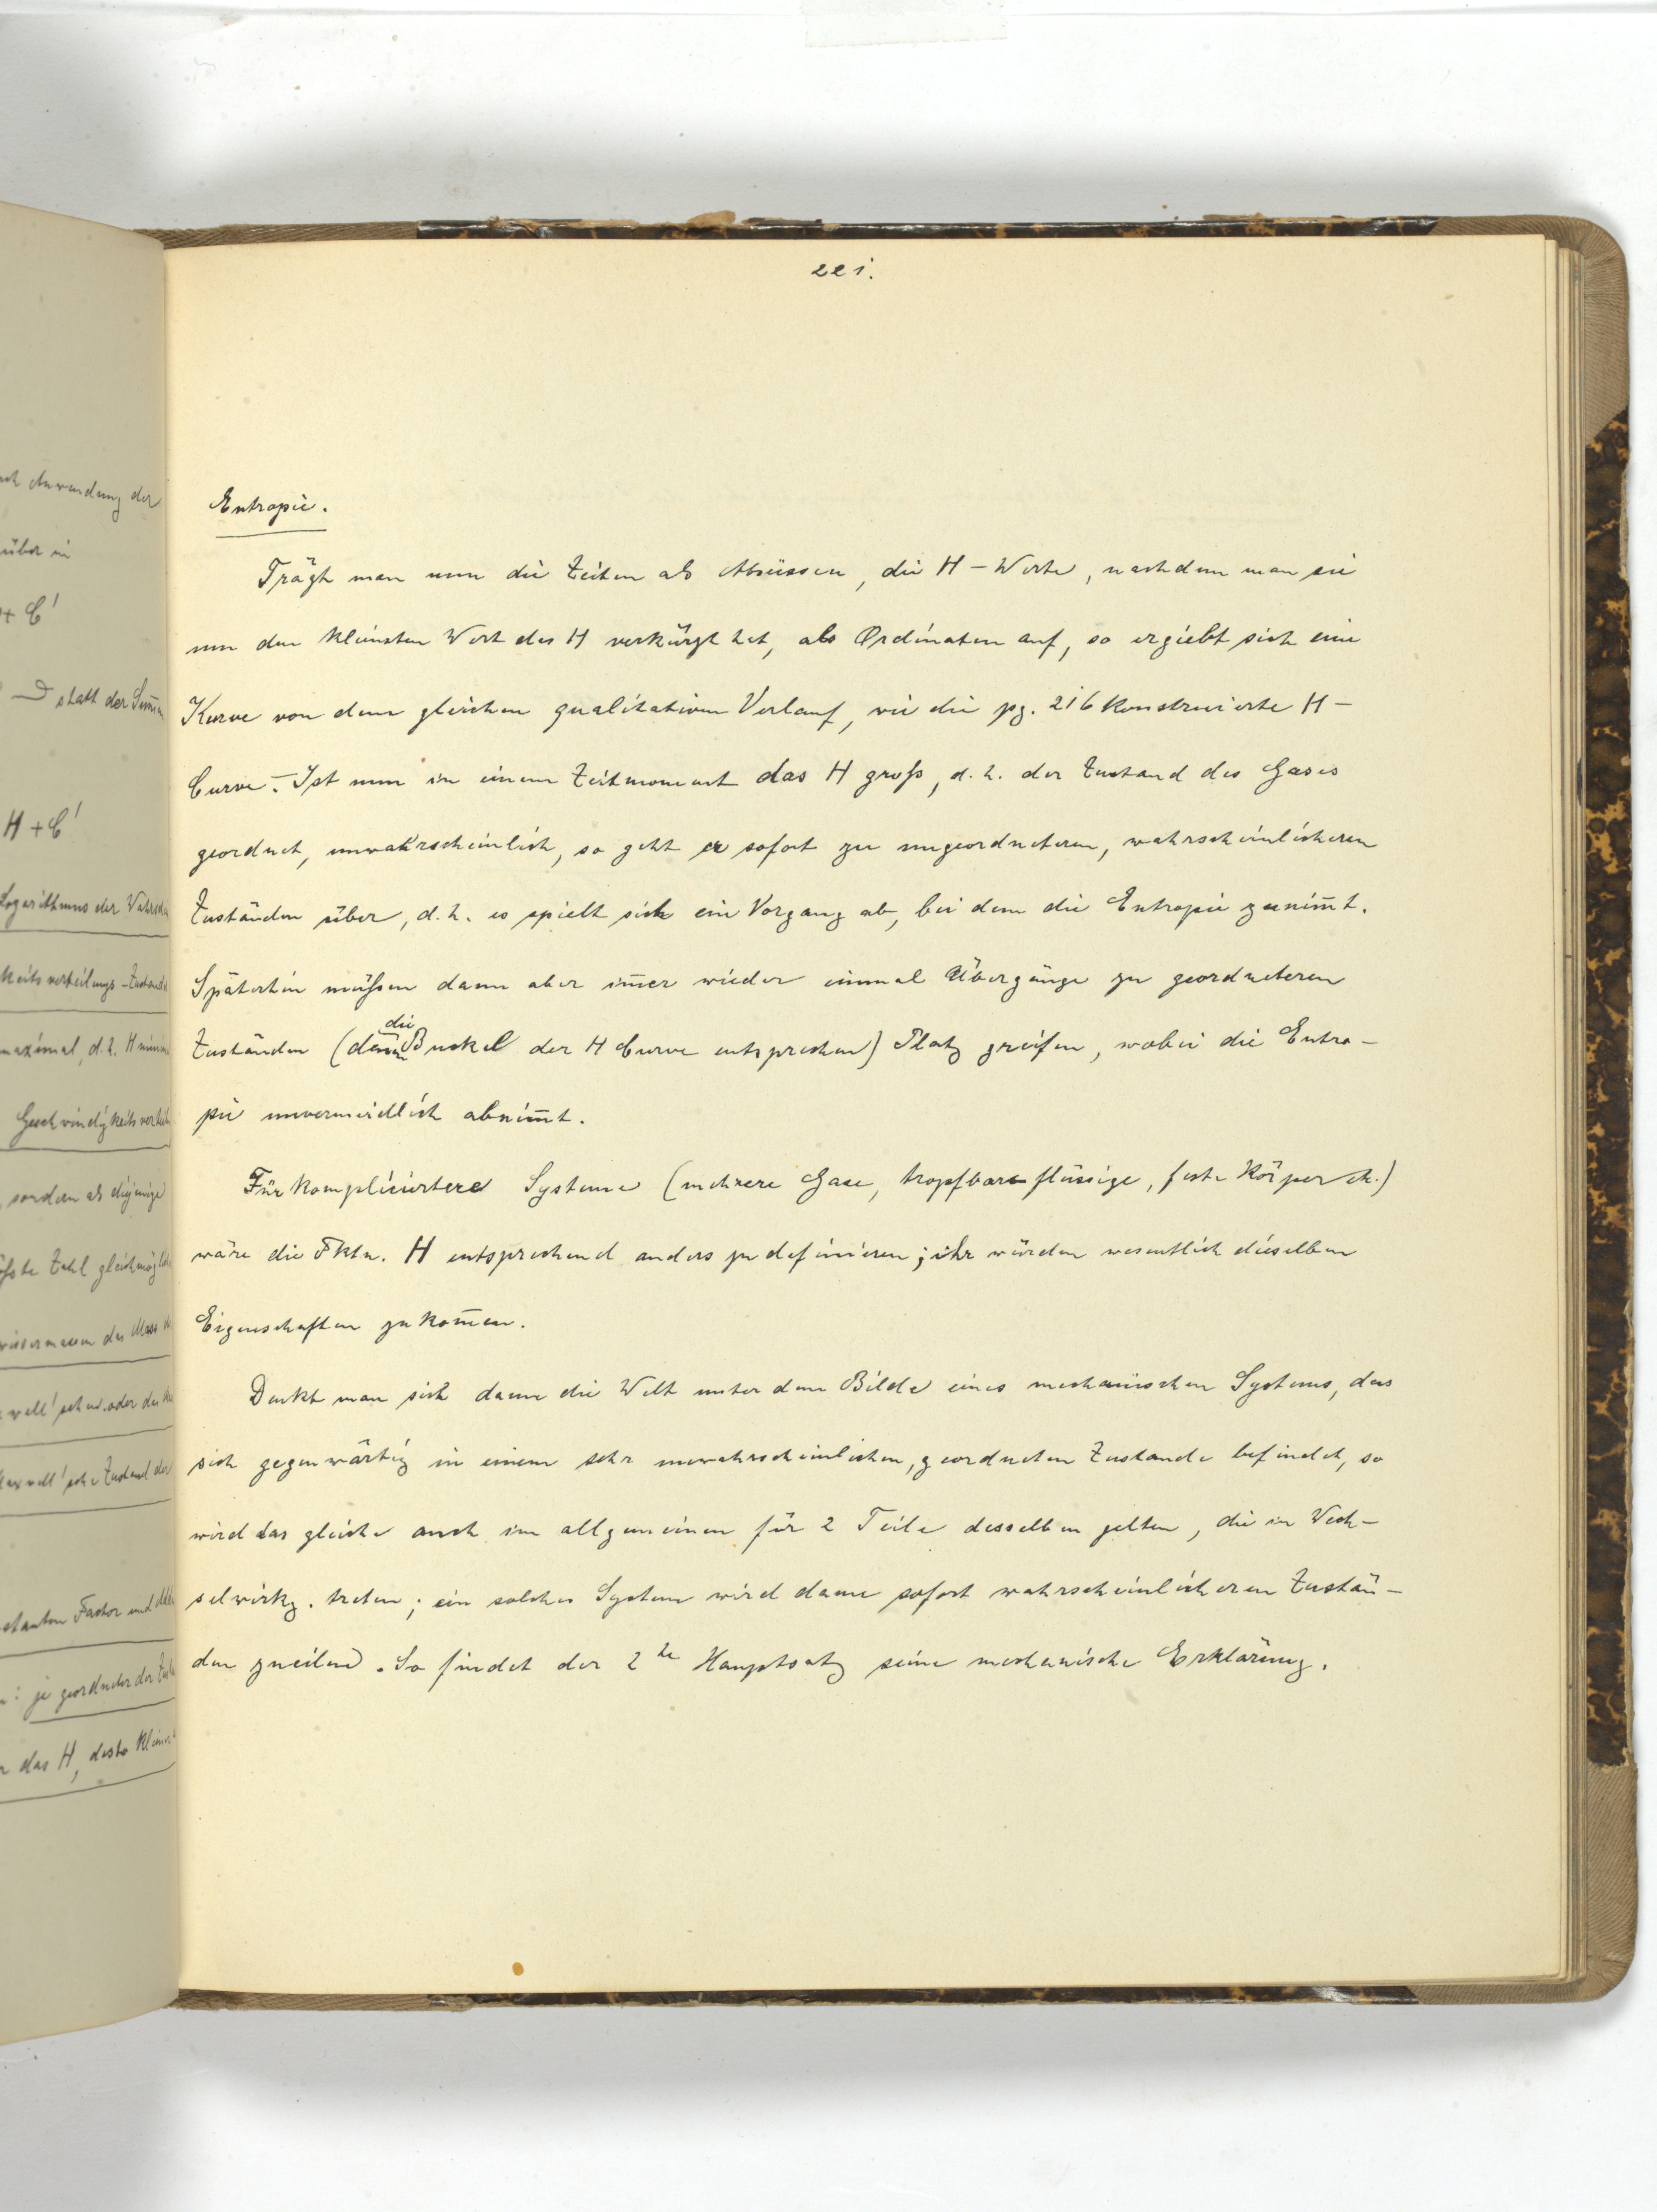 221.
Entropie.
Trägt man nun die Zeiten als Abscissen, die H-Werte, nachdem man sie
um den kleinsten Wert des H verkürzt hat, als Ordinaten auf, so ergiebt sich eine
Kurve von dem gleichen qualitativen Verlauf, wie die pg. 216 konstruierte H-
Curve. – Ist nun in einem Zeitmoment das H groß, d.h. der Zustand des Gases
geordnet, unwahrscheinlich, so geht er sofort zu ungeordneteren, wahrscheinlicheren
Zuständen über, d.h. es spielt sich ein Vorgang ab, bei dem die Entropie zunim̄t.
Späterhin müßen dann aber im̄er wieder einmal Übergänge zu geordneteren
Zuständen (denen die Buckel der H Curve entsprechen) Platz greifen, wobei die Entro-
pie unvermeidlich abnim̄t.
Für kompliciertere Systeme (mehrere Gase, tropfbare flüssige, feste Körper etc.)
wäre die Fktn. H entsprechend anders zu definieren; ihr würden wesentlich dieselben
Eigenschaften zukom̄en.
Denkt man sich dann die Welt unter dem Bilde eines mechanischen Systems, das
sich gegenwärtig in einem sehr unwahrscheinlichen, geordneten Zustande befindet, so
wird das gleiche auch im allgemeinen für 2 Teile desselben gelten, die in Wech-
selwirkg. treten; ein solches System wird dann sofort wahrscheinlicheren Zustän-
den zueilen. So findet der 2te Hauptsatz seine mechanische Erklärung.
Anwendung der
über in
+ C'
statt der Sum̄en
H + C'
Logarithmus der
maximal, d.h. H
sondern als diejenige
Zahl
Zustand der
Factor und
je geordneter der
das H, desto